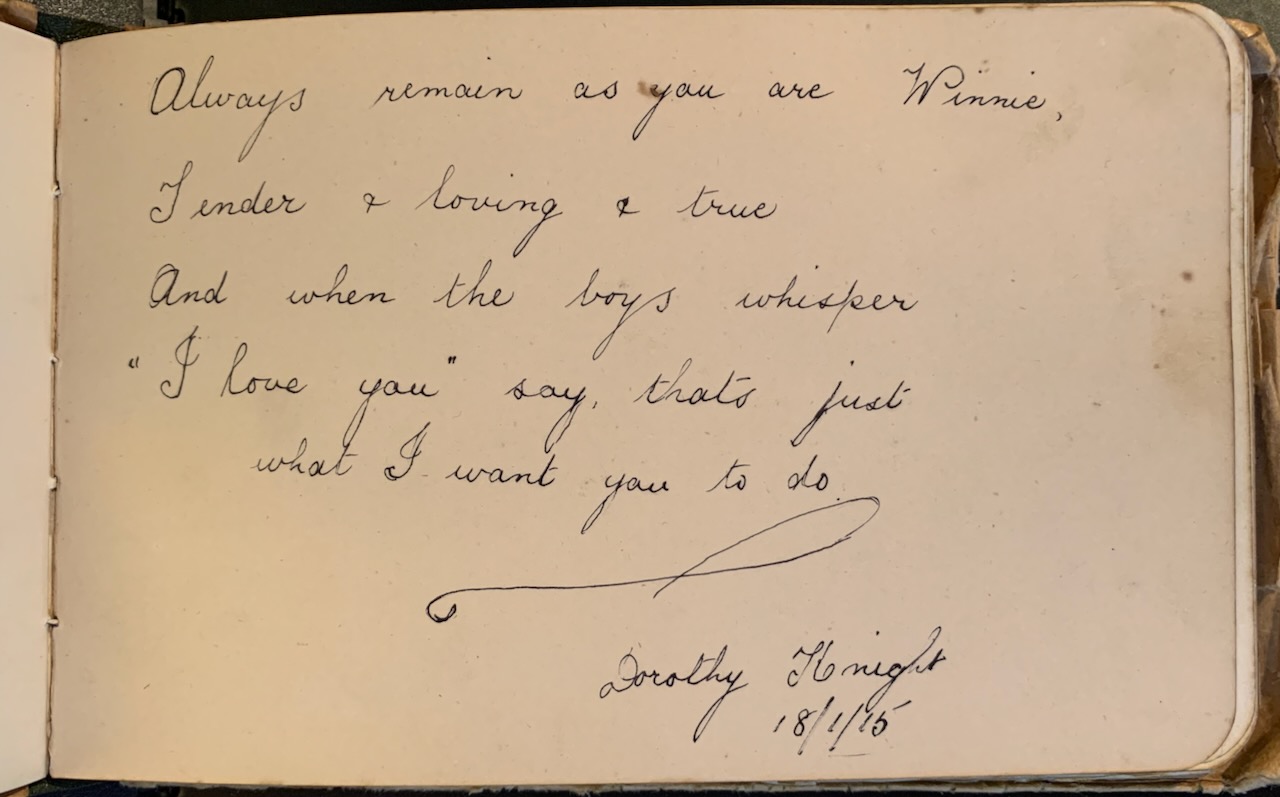 Always remain as you are Winnie,
Tender & loving & true
And when the boys whisper
"I love you" say, thats just
what I want you to do.
Dorothy Knight
18/1/15